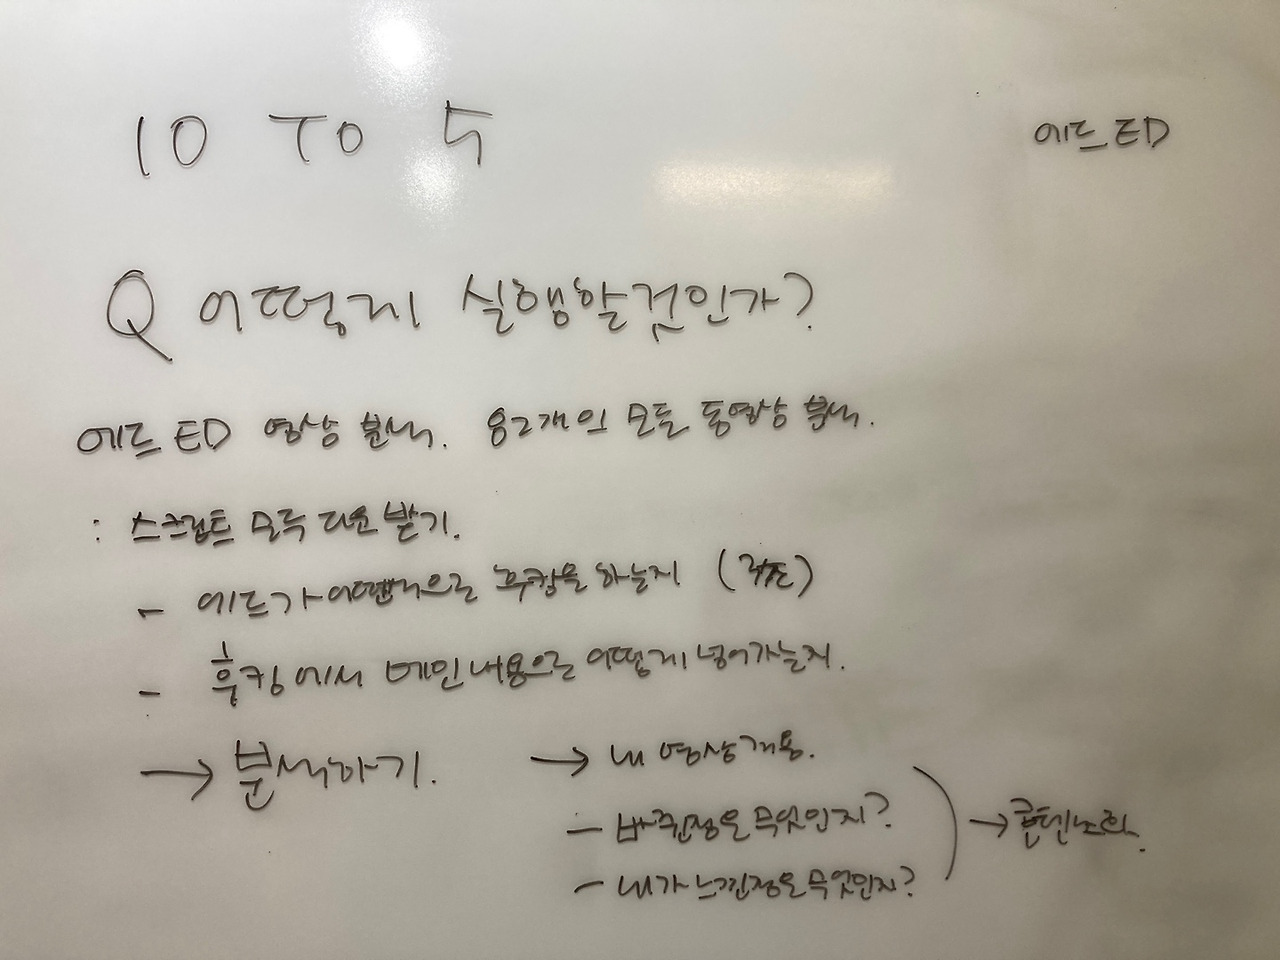 10 TO 5
에드 ED
Q 어떻게 실행할것인가?
에드 ED 영상 분석. 82개의 모든 동영상 분석.
: 스크립트 모두 다운 받기.
- 에드가 어떤식으로 후킹을 하는지 (구조)
- 후킹에서 메인내용으로 어떻게 넘어가는지.
→ 분석하기. → 내 영상개용.
- 바뀐점은 무엇인지?
- 내가 느낀점은 무엇인지?
→ 콘텐츠화.